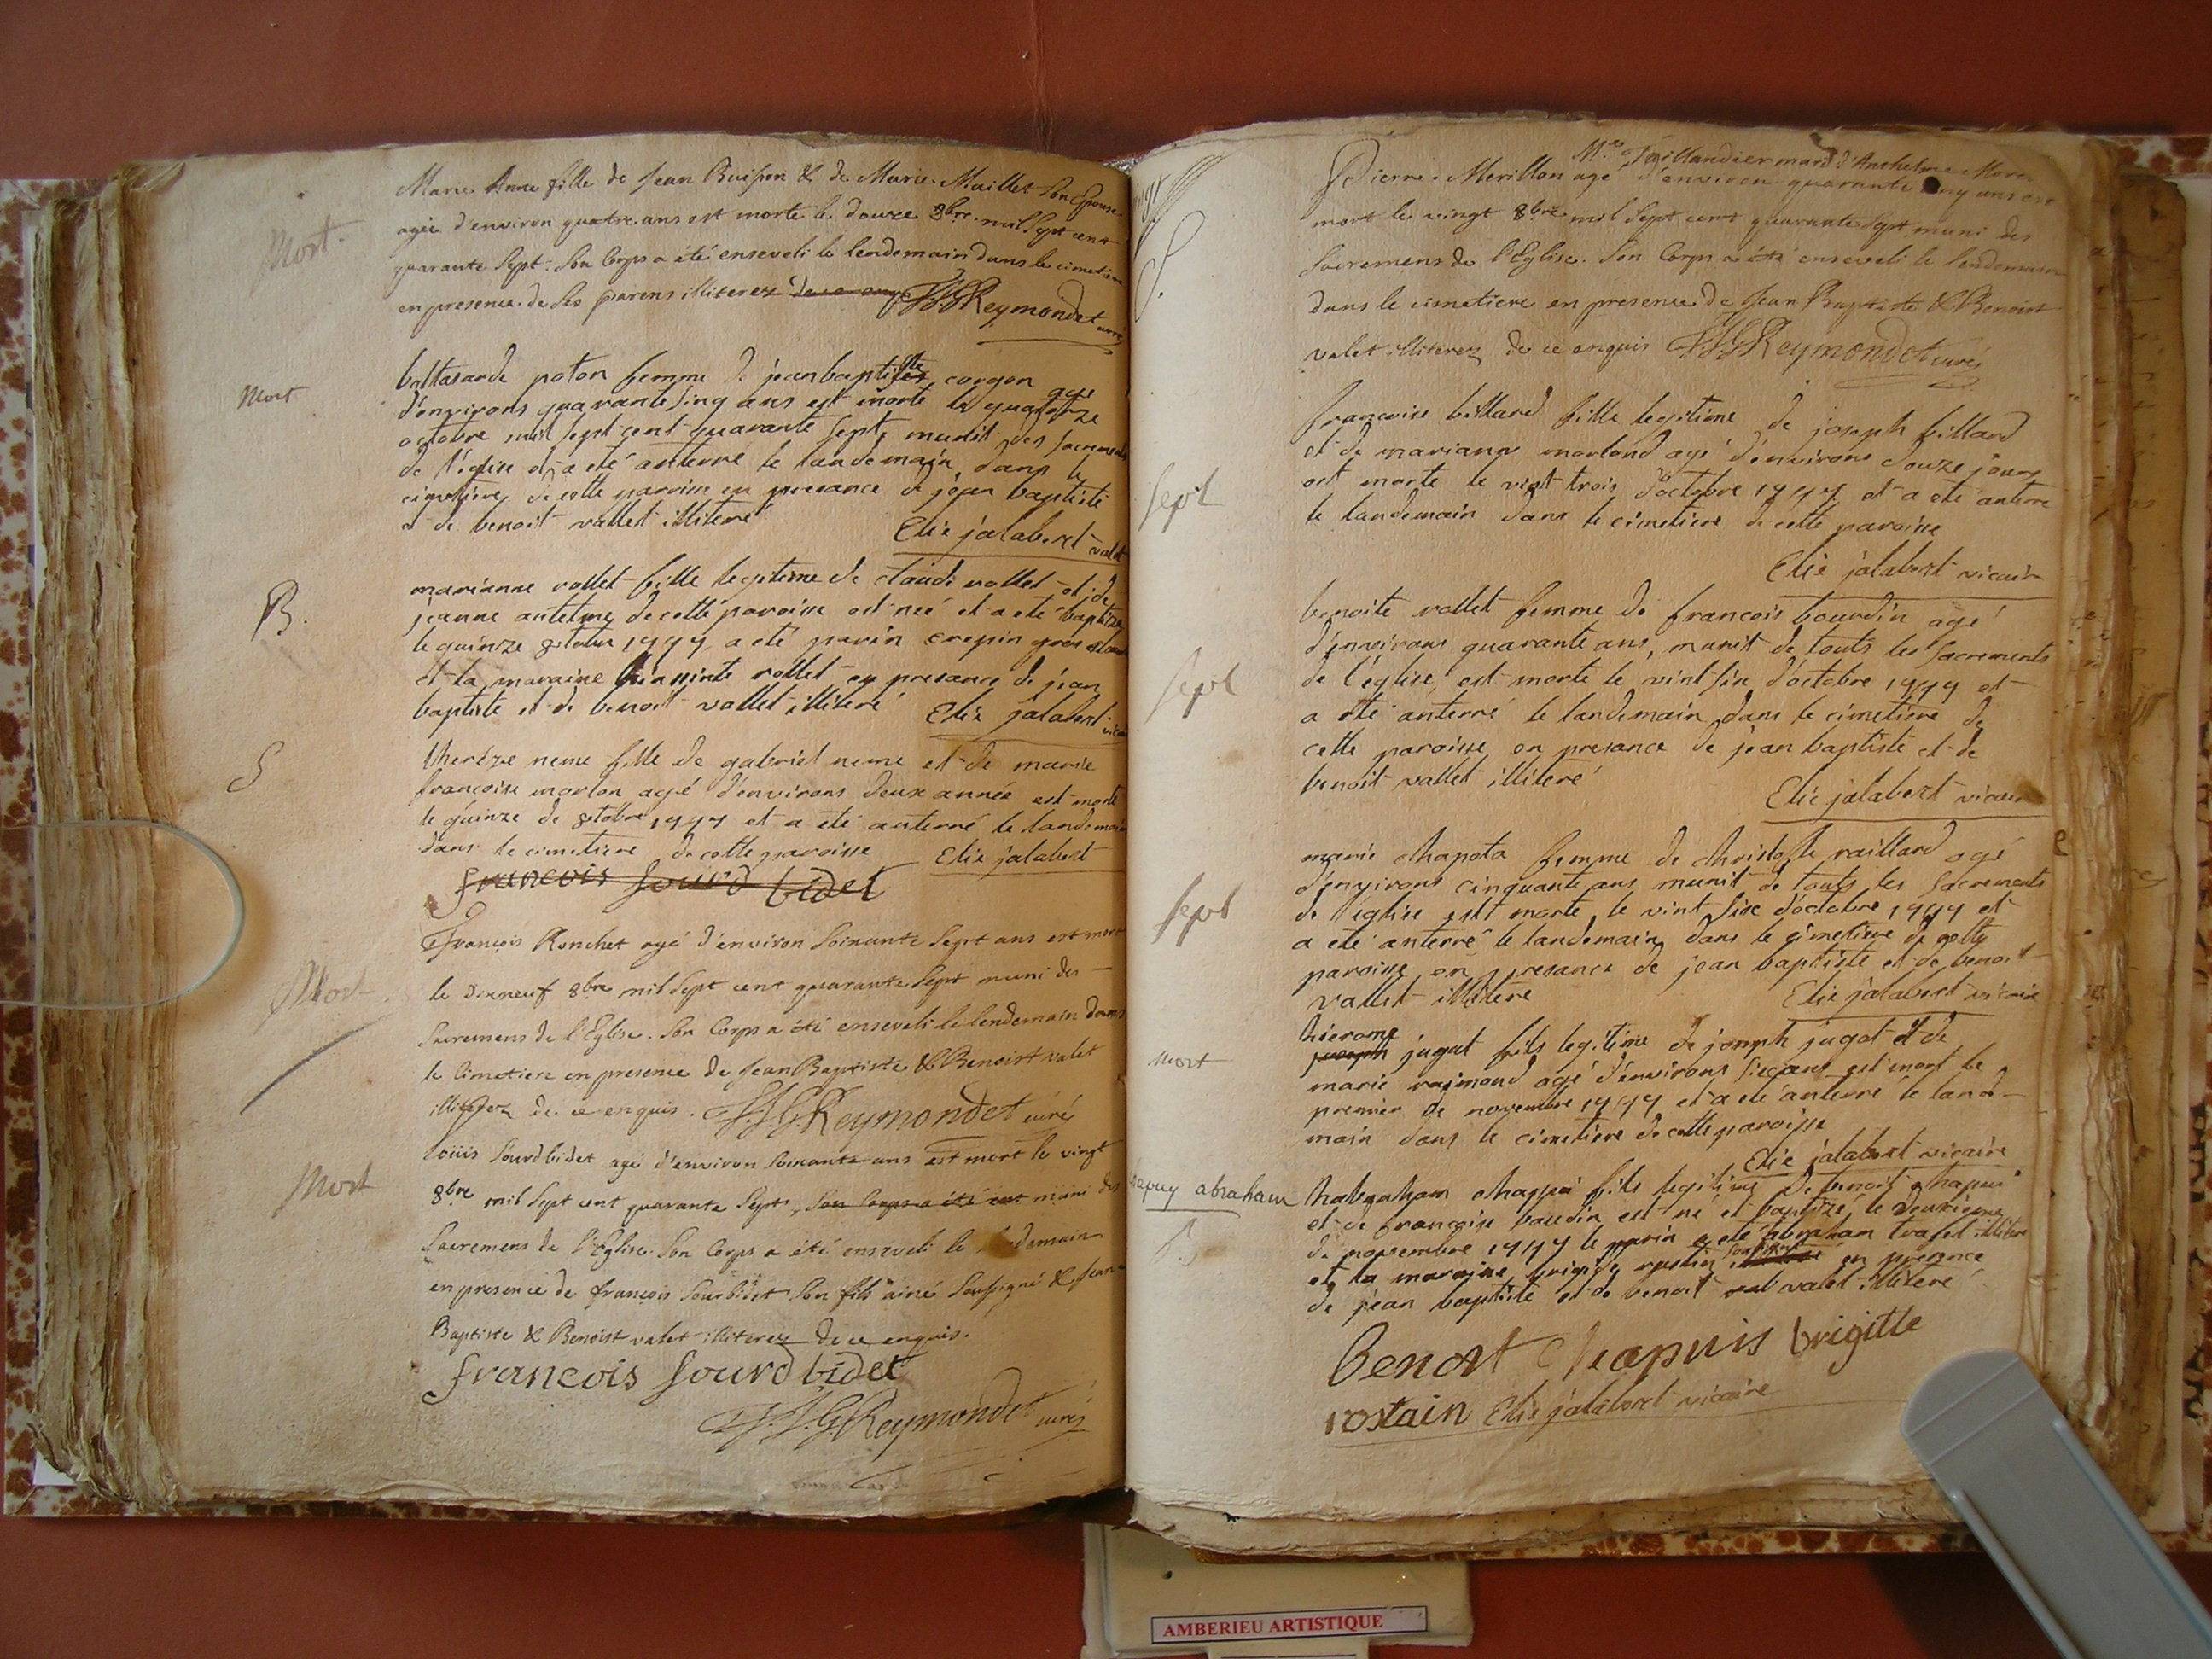 Mort.
Marie Anne fille de Jean Buisson & de Marie Maillet Son Epouse
agée d'environ quatre ans est morte le douze 8bre mil Sept cent
quarante Sept. Son Corps a été enseveli le lendemain dans le cimetiere
en presence de Ses parens illiterez de ce enq J.J.G Reymondet curé
Mort
baltasarde poton femme de jean baptiste corgon age
d'environs quarante sinq ans est morte le quatorze
octobre mil sept cent quarante sept, munit des sacrements
de l'église et a eté anterré le landemain dans le
cimetiere de cette paroisse en presance de jean baptiste
et de benoit vallet illiteré
Elie jalabert
B.
marianne vollet fille legitime de claude vollet et de
jeanne antelme de cette paroisse est neé et a eté baptize
le quinze 8ctobre 1747 a eté parin crepin gros
et la maraine vollet en presance de jean
baptiste et de benoit vallet illiteré Elie jalabert
S
therèze neme fille de gabriel neme et de marie
francoise morlon agé d'environs deux année est morte
le quinze de 8ctobre 1747 et a eté anterré le landemain
dans le cimetiere de cette paroisse Elie jalabert
francois sourd bidet
Mort
François Ronchet agé d'environ Soixante Sept ans est mort
le Dixneuf 8bre mil Sept cent quarante Sept muni des
Sacremens de l'Eglise. Son Corps a été enseveli le lendemain dans
le Cimetiere en presence de Jean Baptiste & Benoist valet
illiterez de ce enquis. J.J.G Reymondet curé
Mort
loüis Sourdbidet agé d'environ Soixante ans est mort le vingt
8bre mil Sept cent quarante Sept, Son Corps a été ent muni des
Sacremens de l'Eglise. Son Corps a été enseveli le lendemain
en presence de françois Sourbidet Son fils ainé Soussigné & Jean
Baptiste & Benoist valet illiterez de ce enquis.
francois sourd bidet
J.J.G Reymondet curé
S.
Mre Taillandier mari d'Anthelme
Pierre Merillon agé d'environ quarante cinq ans est
mort le vingt 8bre mil Sept cent quarante Sept muni des
Sacremens de l'Eglise. Son Corps a été enseveli le lendemain
dans le cimetiere en presence de Jean Baptiste & Benoist
valet illiterez de ce enquis J.J.G Reymondet curé
sept
francoise billard fille legitime de joseph billard
et de mariane morlond agé d'environs douze jours
est morte le vint trois d'octobre 1747 et a eté anterre
le landemain dans le cimetiere de cette paroisse
Elie jalabert vicaire
sept
benoite vollet femme de francois bourdin agé
d'environs quarante ans, munit de touts les sacrements
de l'église est morte le vint six d'octobre 1747 et
a eté anterré le landemain dans le cimetiere de
cette paroisse en presance de jean baptiste et de
benoit vallet illiteré
Elie jalabert vicaire
sept
marie chapota femme de christofle raillard agé
d'environs cinquante ans munit de touts les sacrements
de l'église est morte le vint six d'octobre 1747 et
a eté anterré le landemain dans le cimetiere de cette
paroisse en presance de jean baptiste et de benoit
vallet illiteré Elie jalabert vicaire
mort
hierome
joseph jugat fils legitime de joseph jugat et de
marie raimond agé d'environs six ans est mort le
premier de novembre 1747 et a eté anterré le land-
main dans le cimetiere de cette paroisse
Elie jalabert vicaire
Chapuy abraham
habraham chappui fils legitime de benoit chapui
et de francoise baudin est né et baptizé le deuxieme
de novembre 1747 le parin a eté abraham illitere
et la maraine brigide rostin en presence
de jean baptiste et de benoit val valet illiteré
Benoit Chapuis brigitte
rostain Elie jalabert vicaire
AMBERIEU ARTISTIQUE